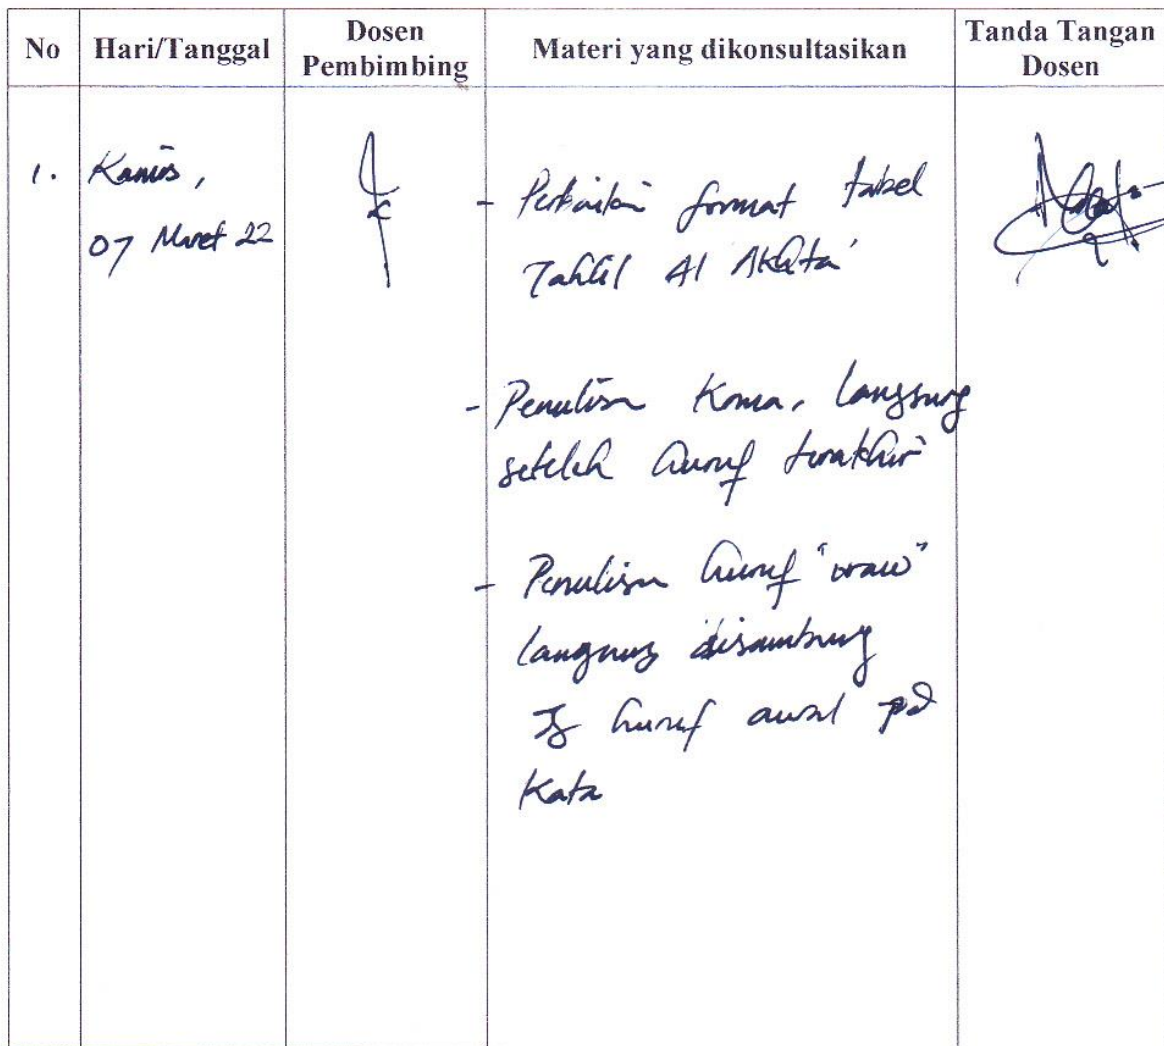 No Hari/Tanggal Dosen Pembimbing Materi yang dikonsultasikan Tanda Tangan Dosen
1. Kamis,
07 Maret 22
- Perbaikan format tabel
Tahlil Al Akhta'
- Penulisan Koma, langsung
setelah huruf terakhir
- Penulisan huruf "waw"
langsung disambung
dg huruf awal pd
Kata